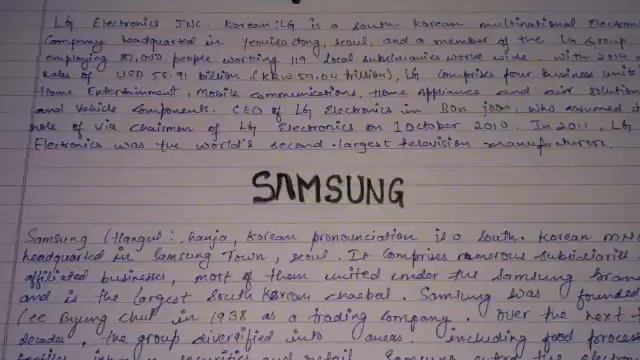 LG Electronics INC. Korean: LG is a south Korean multinational Electron
Company headquarted in Yeouido dong, seoul, and a member of the LG Group
employing 87,010 people working 119 local subsidiaries world wide. with 2014
sales of USD 55.91 billion (KRW 59.04 trillion), LG comprises four business unit
Home Entertainment, Mobile communications, Home Appliance and air solution
and Vehicle Components. CEO of LG Electronics in Bon joon, who assumed
role of via chairman of LG Electronics on 1 October 2010. In 2011, LG
Electronics was the world's second-largest television manufacturer.
SAMSUNG
Samsung (Hangul: hanja, Korean pronunciation is a south. Korean MNC
headquarted in Samsung Town, seoul. It comprises numerous subsidiaries
affiliated businesses, most of them united under the Samsung bran
and is the largest South Korean chaebal. Samsung was founded
Lee Byung chul in 1938 as a trading company. over the next t
decades, the group diversified into areas. including food process
securities and retail. Samsung